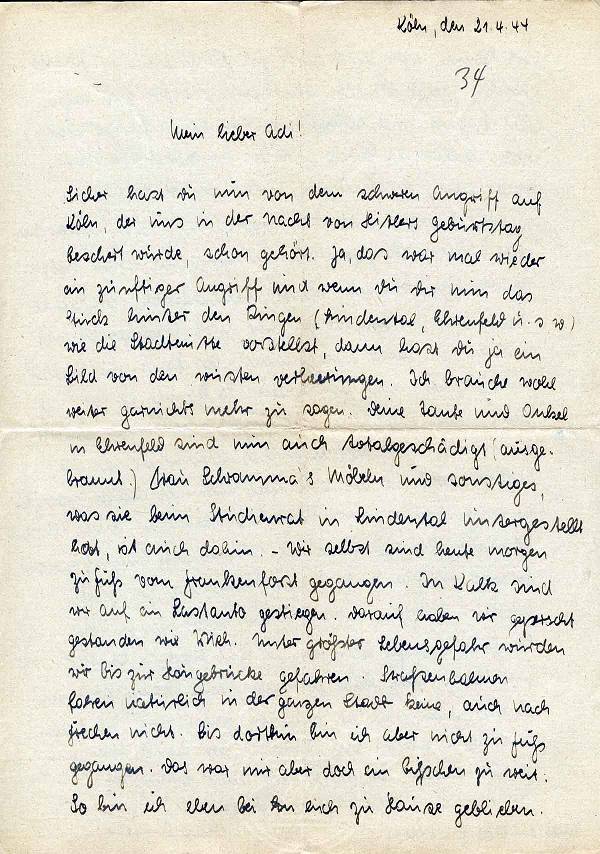 Köln, den 21.4.44
34
Mein lieber Adi!
Sicher hast du nun von dem schweren Angriff auf
Köln, der uns in der Nacht von Hitlers Geburtstag
beschert wurde, schon gehört. Ja, das war mal wieder
ein zünftiger Angriff und wenn du dir nun das
Stück hinter den Ringen (Lindental, Ehrenfeld u. s w)
wie die Stadtmitte vorstellst, dann hast du ja ein
Bild von den wüsten Verheerungen. Ich brauche wohl
weiter garnichts mehr zu sagen. Deine Tante und Onkel
in Ehrenfeld sind nun auch totalgeschädigt (ausge-
brannt.) Frau Schramma's Möbeln und sonstiges,
was sie beim in Lindental untergestellt
hat, ist auch dahin. - Wir selbst sind heute morgen
zu fuß vom Frankenforst gegangen. In Kalk sind
wir auf ein Lastauto gestiegen. Darauf haben wir
gestanden wie Vieh. Unter größter Lebensgefahr wurden
wir bis zur Hängebrücke gefahren. Straßenbahnen
fahren natürlich in der ganzen Stadt keine, auch nach
Frechen nicht. Bis dorthin bin ich aber nicht zu fuß
gegangen. Das war mir aber doch ein bißchen zu weit.
So bin ich eben bei euch zu Hause geblieben.